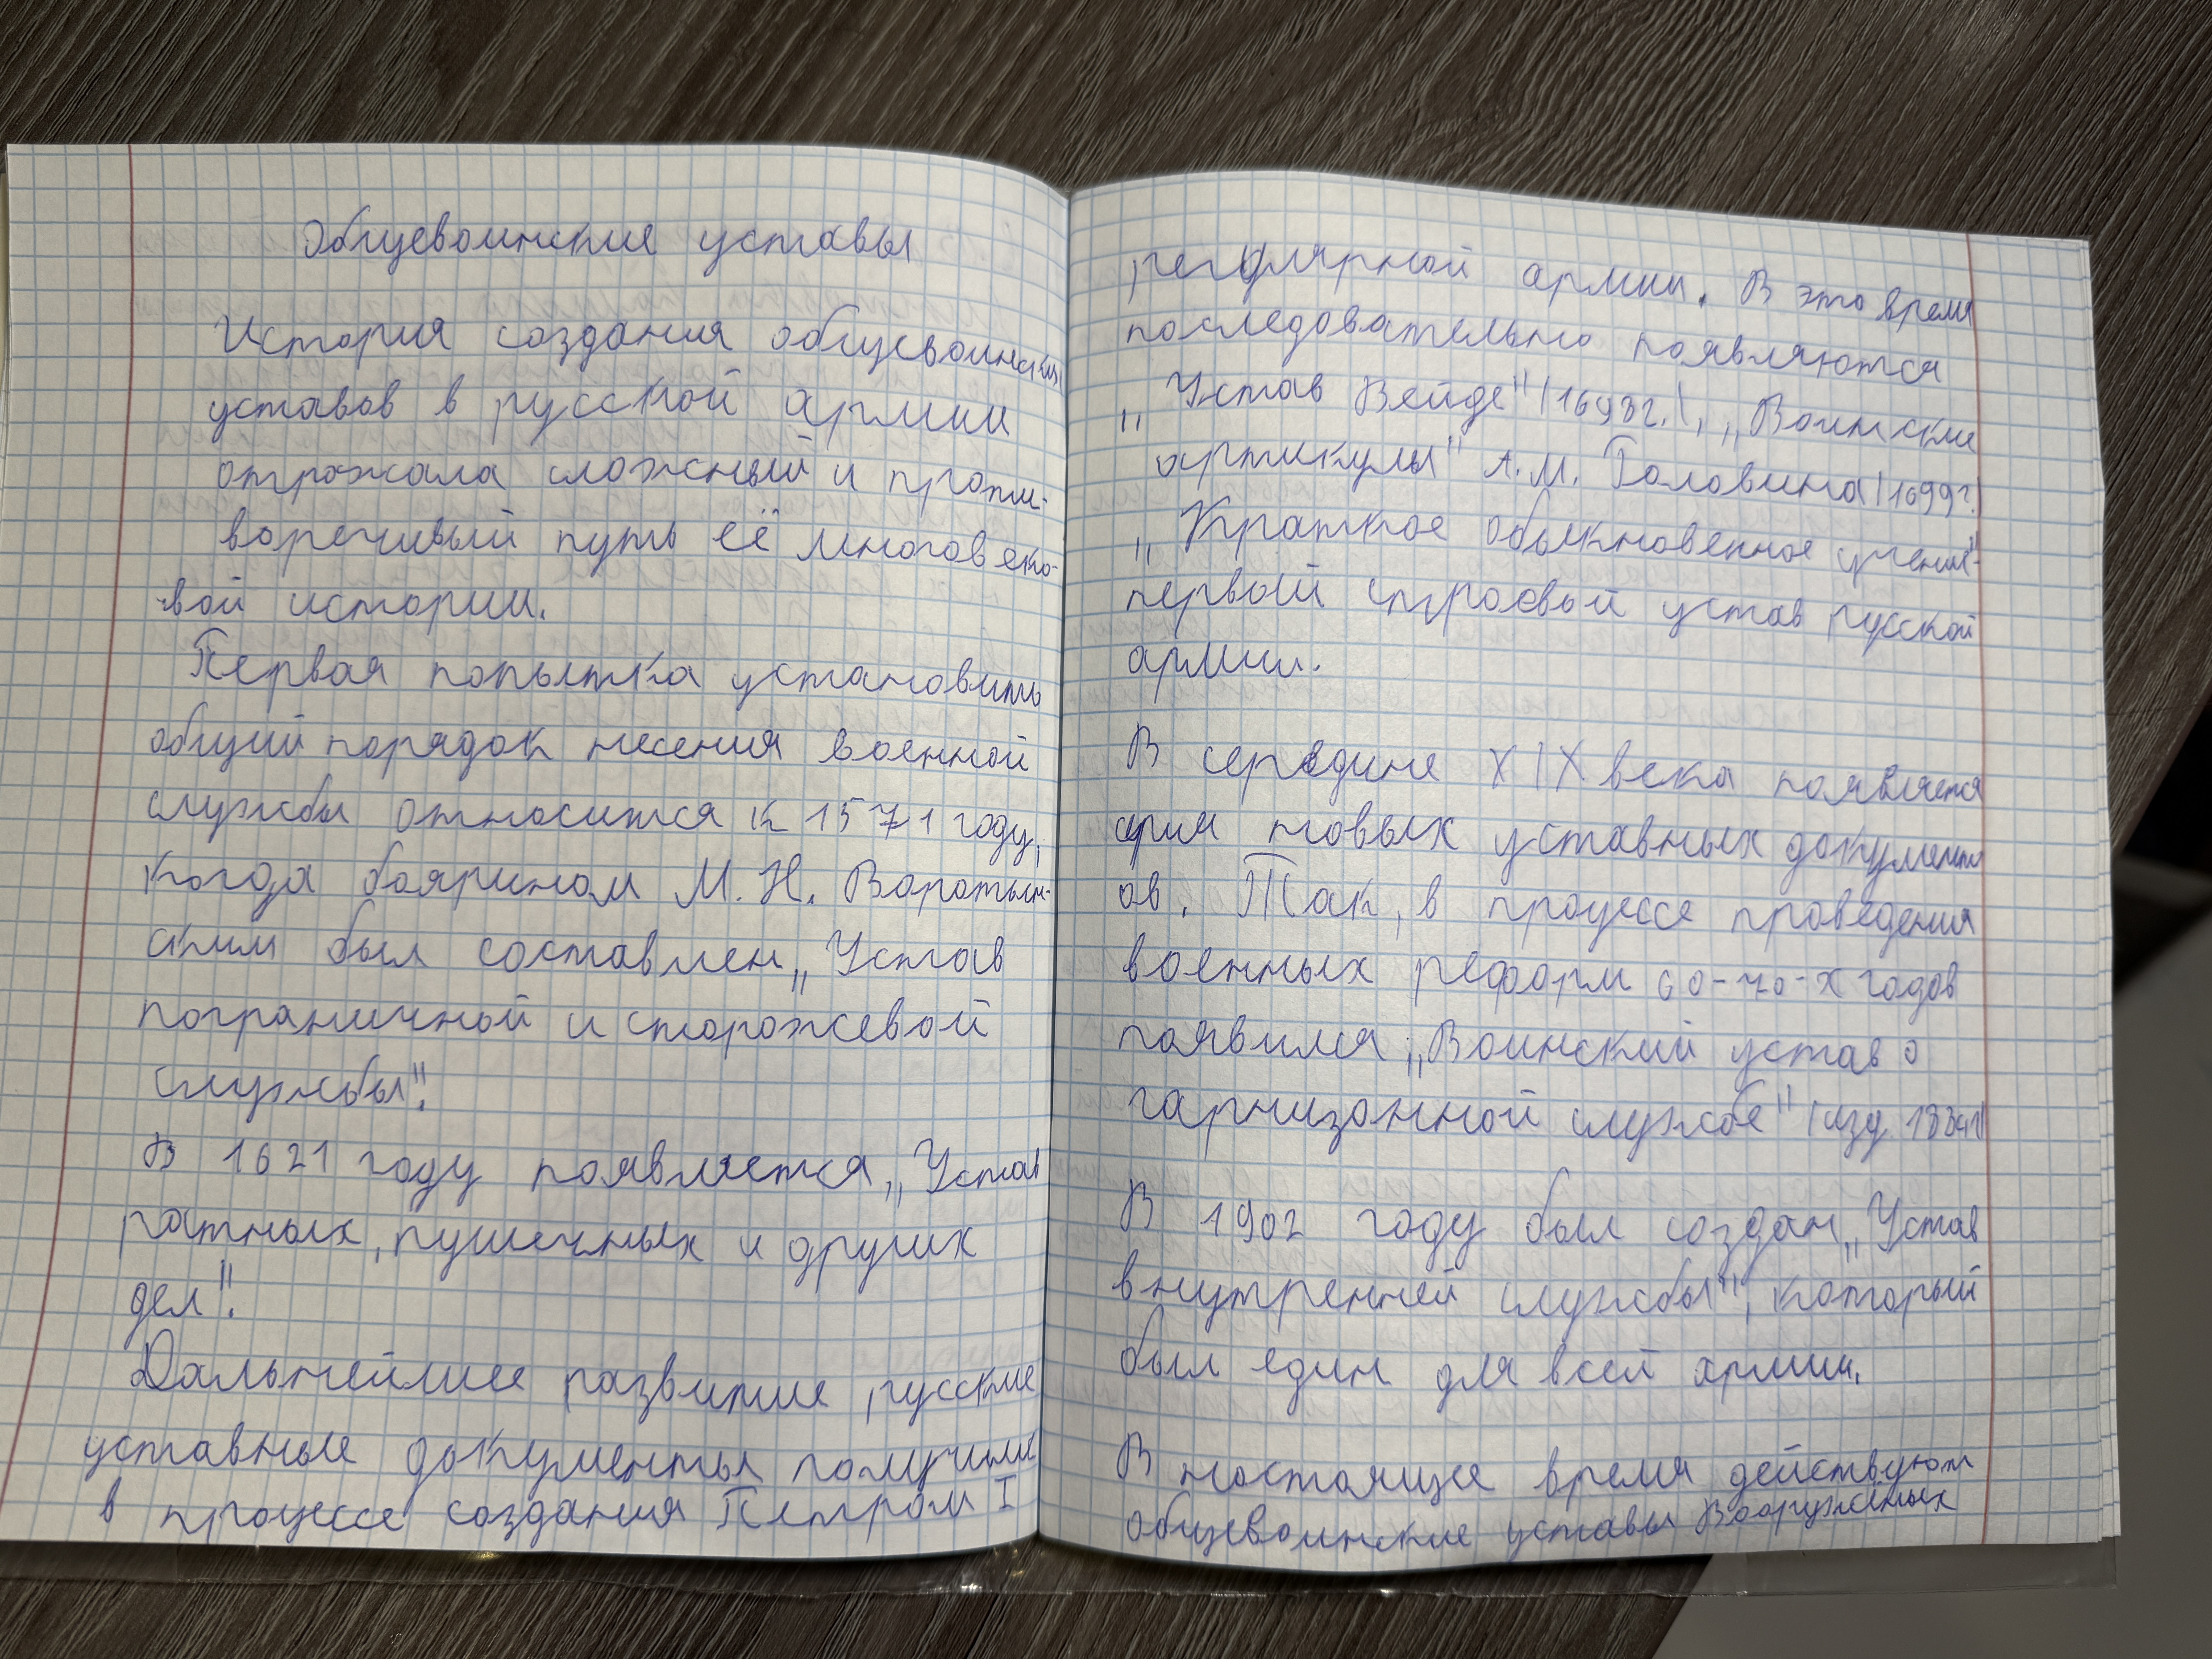 Общевоинские уставы
История создания общевоинских
уставов в русской армии
отражала сложный и проти-
воречивый путь её многовеко-
вой истории.
Первая попытка установить
общий порядок несения военной
службы относится к 1571 году,
когда боярином М. И. Воротын-
ским был составлен „Устав
пограничной и сторожевой
службы".
В 1621 году появляется „Устав
ратных, пушечных и других
дел".
Дальнейшее развитие русские
уставные документы получили
в процессе создания Петром I
регулярной армии. В это время
последовательно появляются
„Устав Вейде" (1698г.), „Воинские
артикулы" А. М. Головина (1699г.)
„Краткое обыкновенное учение"-
первый строевой устав русской
армии.
В середине XIX века появляется
серия новых уставных документ
ов. Так, в процессе проведения
военных реформ 60-70-х годов
появился „Воинский устав о
гарнизонной службе" (изд
В 1902 году был создан „Устав
внутренней службы", который
был един для всей армии.
В настоящее время действуют
общевоинские уставы Вооружёных